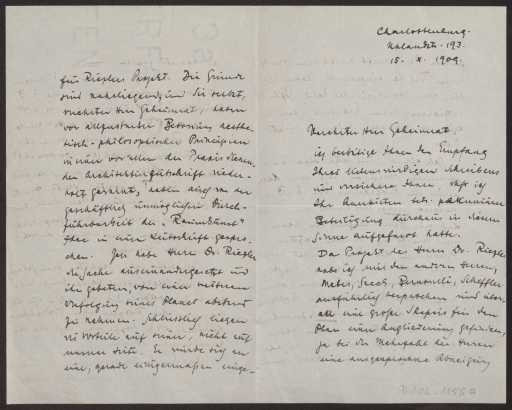 Charlottenburg.
15. X. 1909.
Verehrter Herr Geheimrat,
ich bestätige Ihnen den Empfang
Ihres liebenswürdigen Schreibens
und versichere Ihnen, daß ich
Ihr
Betätigung durchaus in Ihrem
Sinne aufgefasst hatte.
Das Projekt des Herrn Dr. Riezler
habe ich mit den anderen Herren,
Scheffler
ausführlich besprochen und über-
all eine große Skepsis für den
Plan einer Angliederung gefunden,
ja bei der Mehrzahl der Herren
eine ausgesprochene Abneigung
für Riezlers Projekt. Die Gründe
sind naheliegend, und Sie selbst,
verehrter Herr Geheimrat, haben
vor
-philosophischer Prinzipien
in einer vor allem der Praxis dienen-
den Architekturzeitschrift
gewarnt, haben auch von der
geschäftlich unmöglichen Durch-
führbarkeit der "Raumkunst"
Idee in einer Zeitschrift gespro-
chen. Ich habe Herrn Dr. Riezler
die Sache auseinandergesetzt und
ihn gebeten, von einer weiteren
Verfolgung eines Planes Abstand
zu nehmen. Schliesslich liegen
die Vorteile auf seiner, nicht auf
unserer Seite. Er würde sich in
eine, gerade einigermaßen einge-